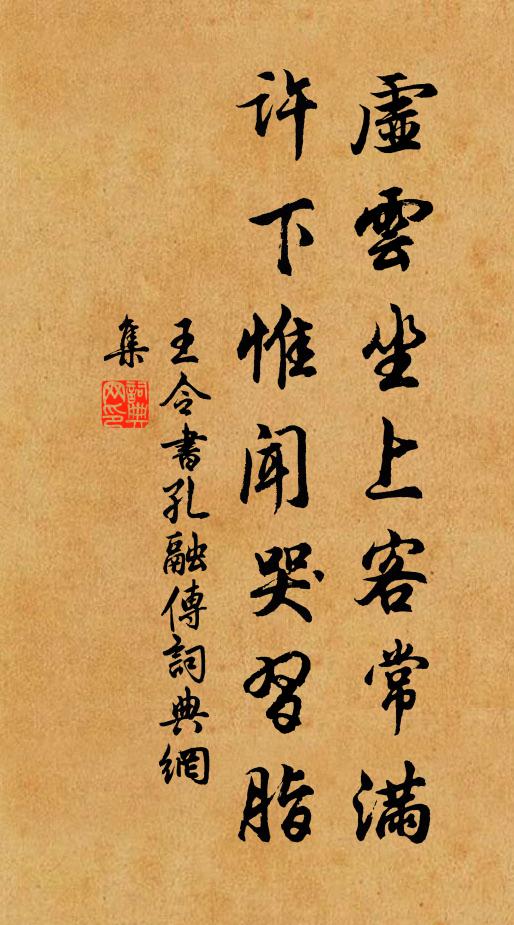 虛雲坐上客常滿
許下惟闻哭習脂
王令書孔融傳詞典網
集
詞典網印